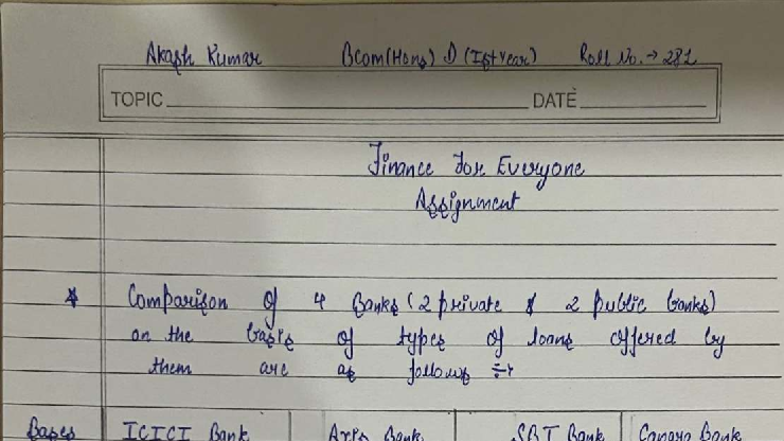 Akash Kumar BCom(Hons) D (Ist year) Roll No. → 281
TOPIC DATE
Finance for Everyone
Assignment
* Comparison of 4 Banks (2 private & 2 public banks)
on the basis of types of loans offered by
them are as follows :→
Bases ICICI Bank Axis Bank SBI Bank Canara Bank